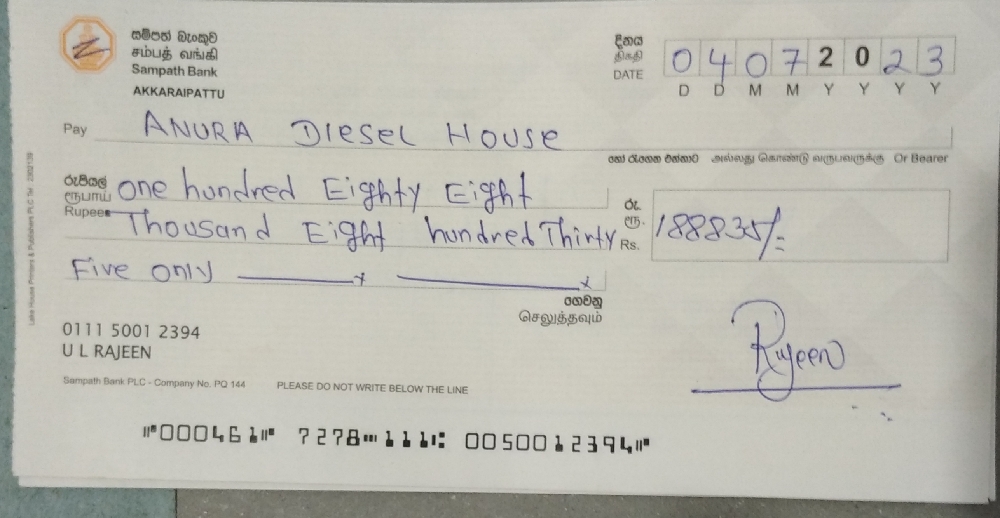 සම්පත් බැංකුව
சம்பத் வங்கி
Sampath Bank
AKKARAIPATTU
දිනය
திகதி
DATE
0 4 0 7 2 0 2 3
D D M M Y Y Y Y
Pay ANURA DIESEL HOUSE
හෝ රැගෙන එන්නාට அல்லது கொண்டு வருபவருக்கு Or Bearer
රුපියල්
ரூபாய்
Rupees
One hundred Eighty Eight
Thousand Eight hundred Thirty
Five only
රු.
ரூ.
Rs.
188835/=
ගෙවනු
செலுத்தவும்
0111 5001 2394
U L RAJEEN
Rajeen
Sampath Bank PLC - Company No. PQ 144 PLEASE DO NOT WRITE BELOW THE LINE
⑈000461⑈ 7278⑉111⑆ 0050012394⑈